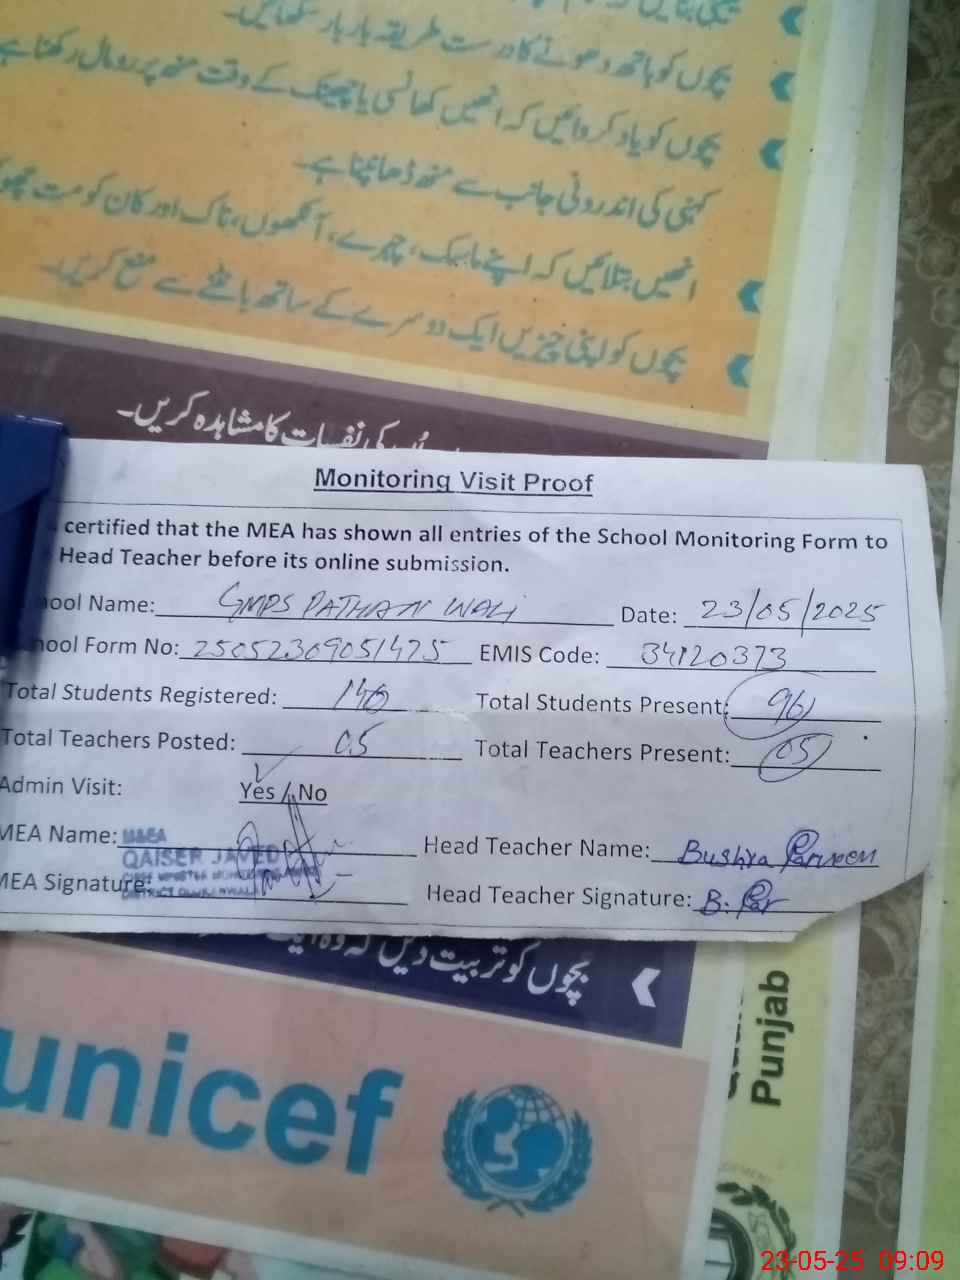 بچوں کو ہاتھ دھونے کا درست طریقہ بار بار سکھائیں۔
بچوں کو یاد کروائیں کہ انھیں کھانسی یا چھینک کے وقت منھ پر رومال رکھنا ہے
کہنی کی اندرونی جانب سے منھ ڈھانپنا ہے۔
انھیں بتلائیں کہ اپنے ماسک، چہرے، آنکھوں، ناک اور کان کو مت
بچوں کو اپنی چیزیں ایک دوسرے کے ساتھ بانٹنے سے منع کریں۔
کی نفسیات کا مشاہدہ کریں۔
Monitoring Visit Proof
certified that the MEA has shown all entries of the School Monitoring Form to
Head Teacher before its online submission.
hool Name: GMPS PATHAN WALI Date: 23/05/2025
hool Form No: 25052309051475 EMIS Code: 34120373
Total Students Registered: 146 Total Students Present: 96
Total Teachers Posted: 05 Total Teachers Present: 05
Admin Visit: Yes / No
MEA Name: M&EA Head Teacher Name: Bushra Parveen
QAISER JAVED
MEA Signature: Head Teacher Signature: B. Par
بچوں کو تربیت دیں کہ وہ
unicef
Punjab
23-05-25 09:09